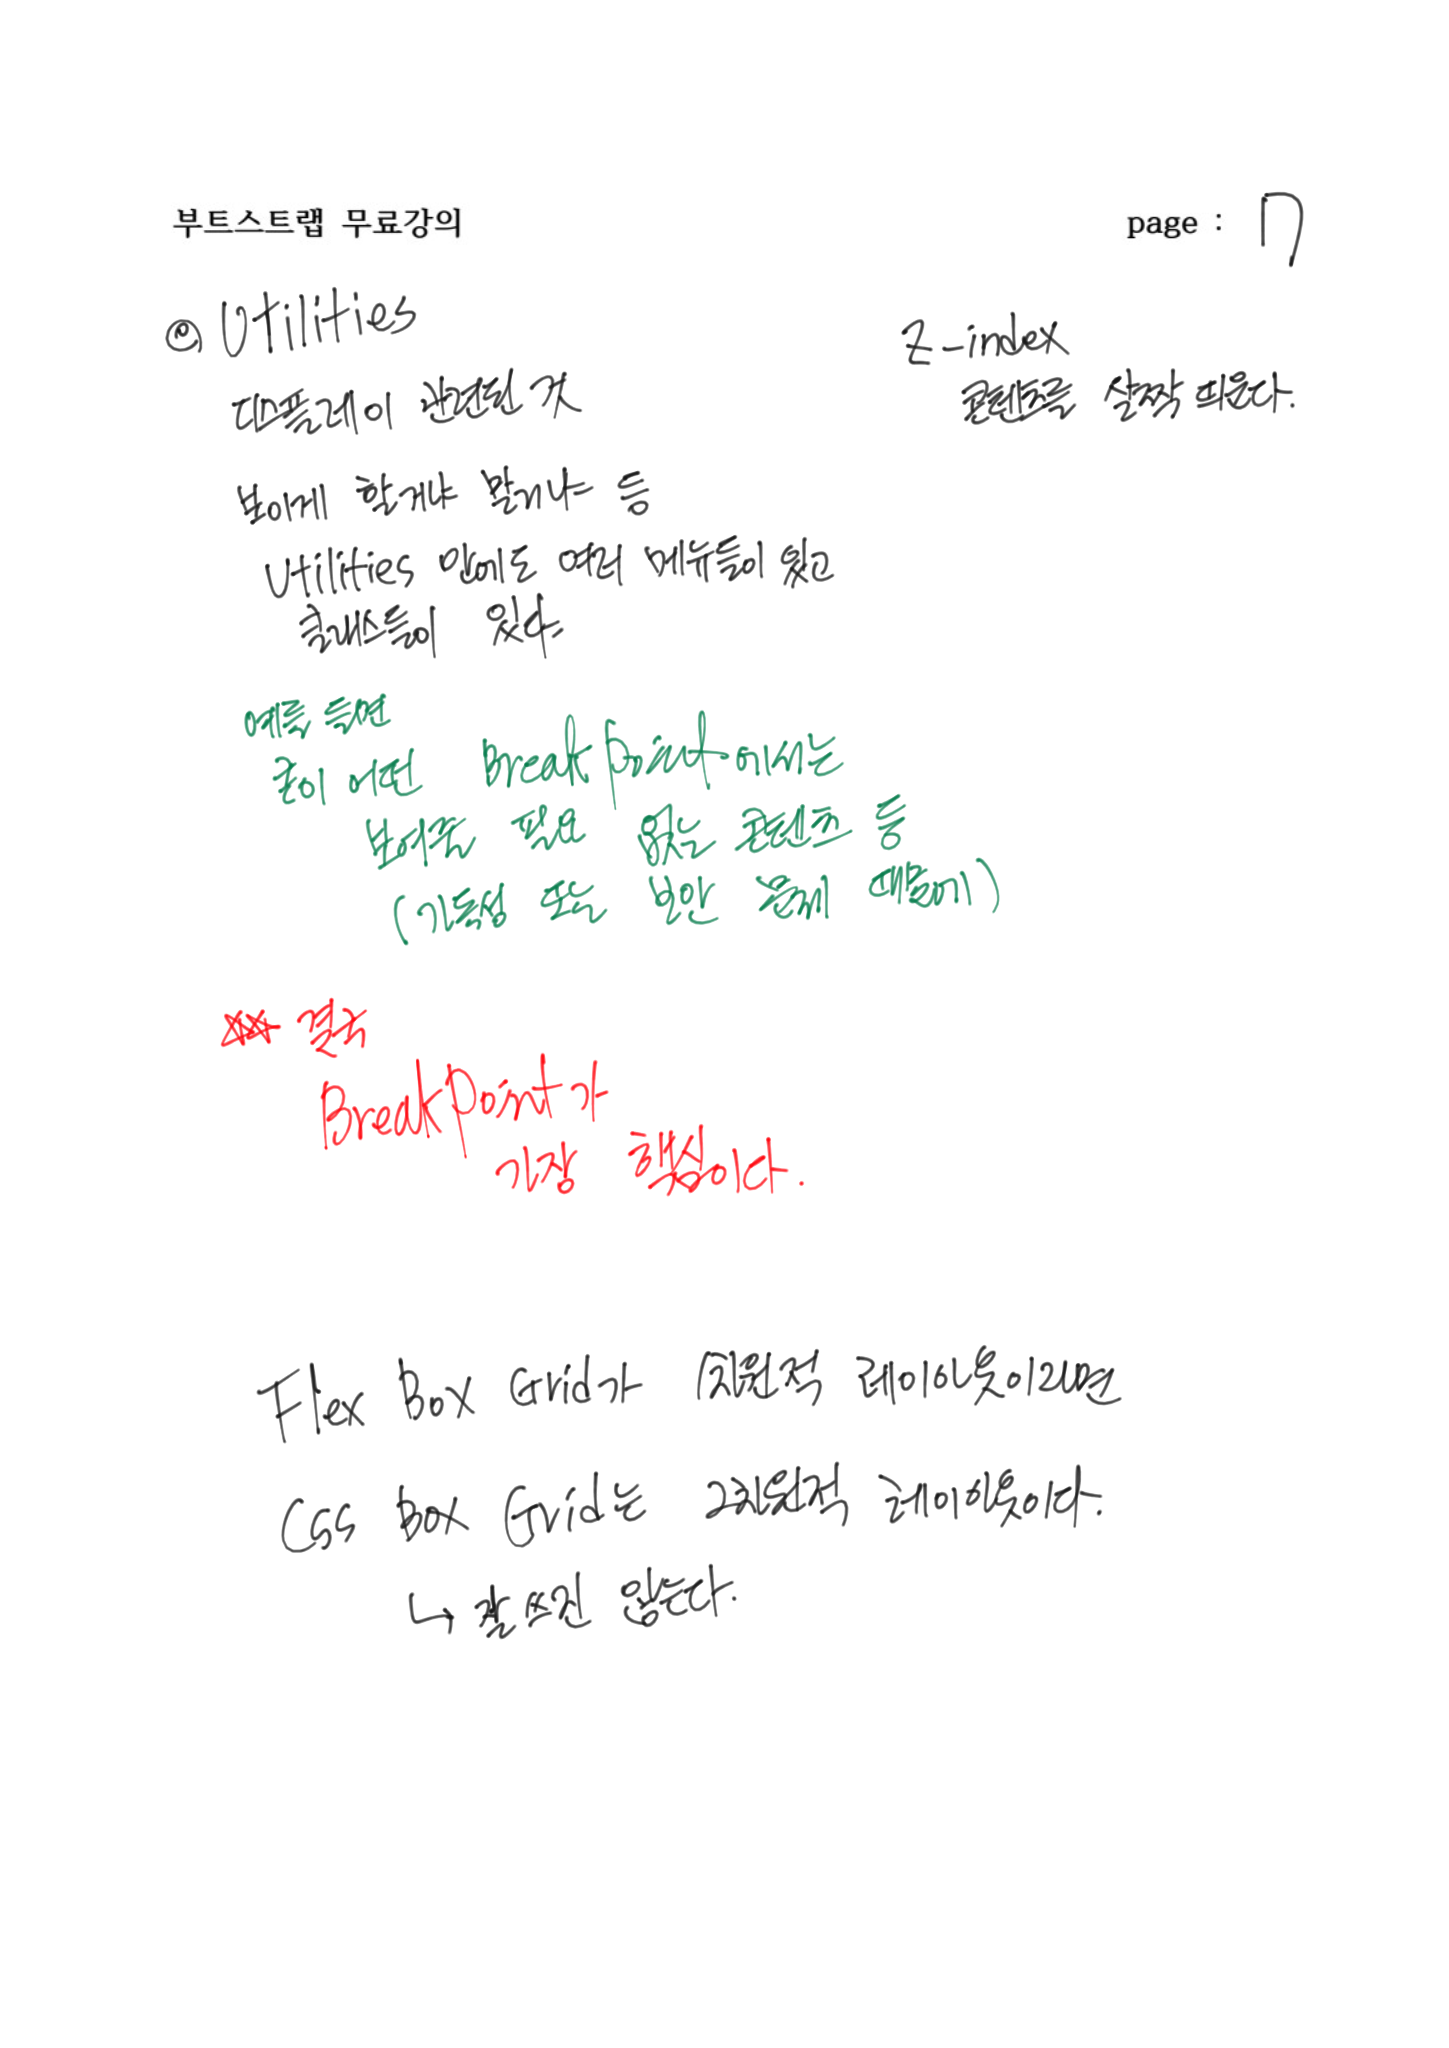 부트스트랩 무료강의
page : 7
@ Utilities
디스플레이 관련된 것
Z-index
콘텐츠를 살짝 띄운다.
보이게 할거냐 말거냐 등
Utilities 안에도 여러 메뉴들이 있고
클래스들이 있다
예를 들면
굳이 어떤 Break Point에서는
보여줄 필요 없는 콘텐츠 등
(가독성 또는 보안 문제 때문에)
☆☆ 결국
Break Point가
가장 핵심이다.
Flex Box Grid가 1차원적 레이아웃이라면
CSS Box Grid는 2차원적 레이아웃이다.
↳ 잘 쓰진 않는다.